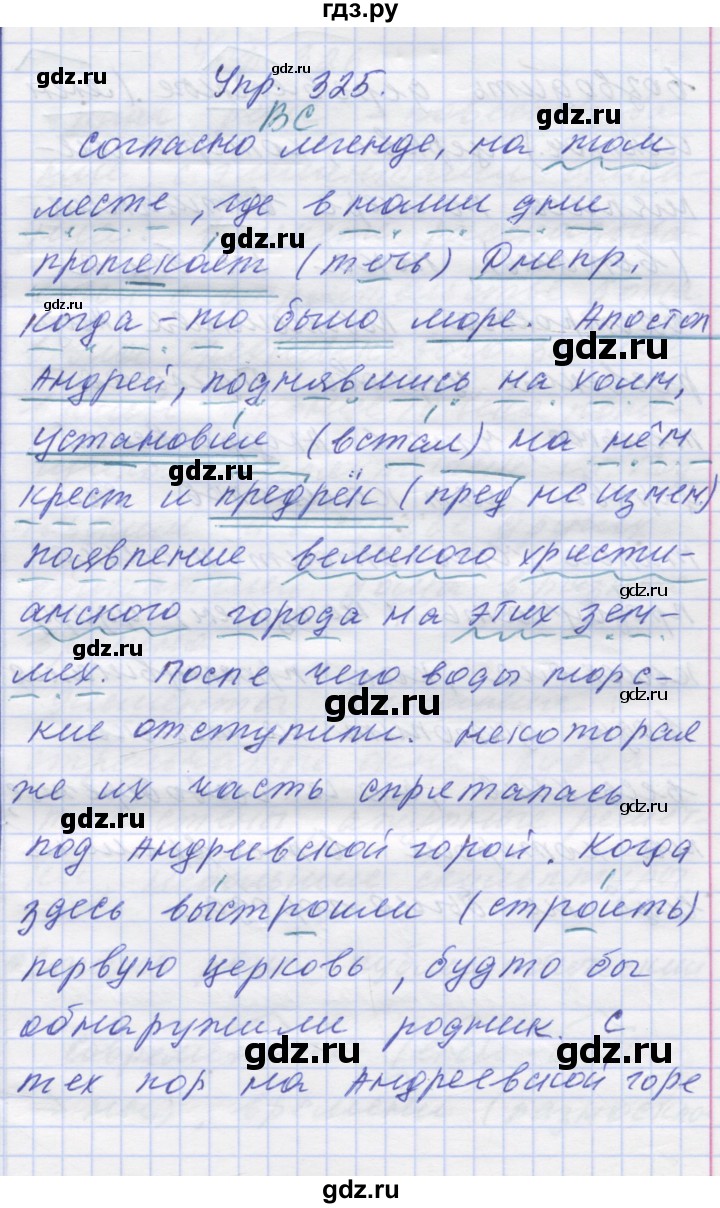 гдз.ру
gdz.ru
gdz.ru
Упр. 325.
gdz.ru
ВС
Согласно легенде, на том
месте, где в наши дни
gdz.ru
протекает (течь) Днепр,
gdz.ru
когда-то было море. Апостол
gdz.ru
Андрей, поднявшись на холм,
установил (встал) на нём
gdz.ru
крест и предрёк (пред не измен)
появление великого христи-
gdz.ru
анского города на этих зем-
gdz.ru
лях. После чего воды морс-
gdz.ru
gdz.ru
кие отступили. Некоторая
же их часть спряталась
gdz.ru
gdz.ru
под Андреевской горой. Когда
здесь выстроили (строить)
первую церковь, будто бы
обнаружили родник. С
gdz.ru
gdz.ru
тех пор на Андреевской горе
gdz.ru